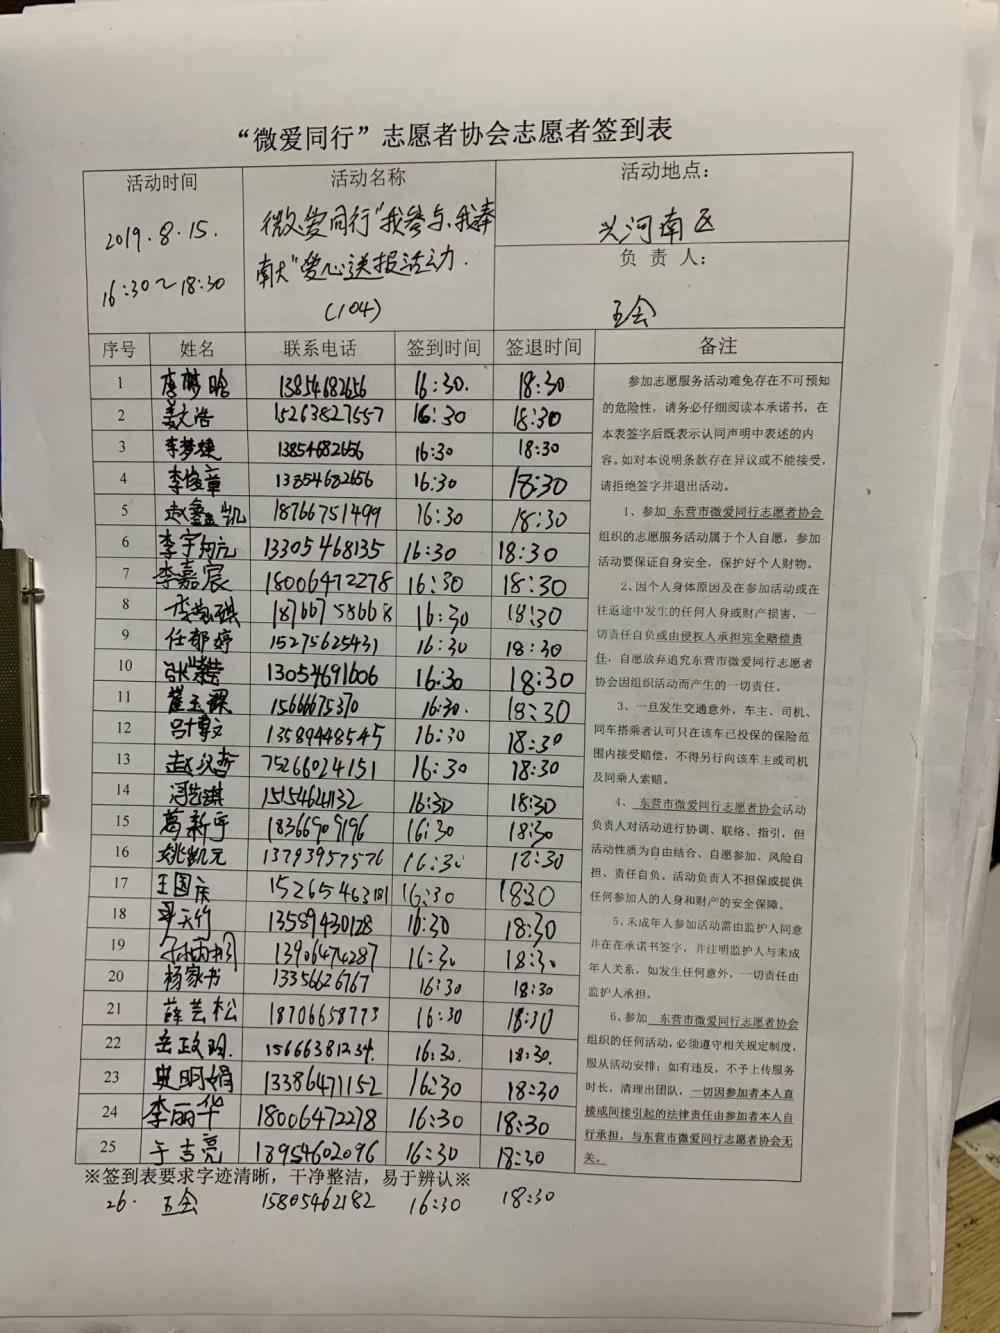 “微爱同行”志愿者协会志愿者签到表
活动时间
2019.8.15.
16:30～18:30
活动名称
微爱同行“我参与、我奉
献”爱心送报活动.
(104)
活动地点：
兴河南区
负 责 人：
王会
序号 姓名 联系电话 签到时间 签退时间 备注
1 李梦晗 13854682656 16:30. 18:30
2 姜文浩 15263827557 16:30 18:30
3 李梦婕 13854682656 16:30 18:30
4 李俊章 13854682656 16:30 18:30
5 赵鑫凯 18766751499 16:30 18:30
6 李宇航 13305468135 16:30 18:30
7 李嘉宸 18006472278 16:30 18:30
8 18766758668 16:30 18:30
9 任郁婷 15275625431 16:30 18:30
10 13054691606 16:30 18:30
11 崔玉琛 15666675310 16:30. 18:30
12 吕博文 13589448545 16:30 18:30
13 15266024151 16:30 18:30
14 冯艺琪 16:30 18:30
15 葛新宇 18366909196 16:30 18:30
16 姚凯元 13793957576 16:30 18:30
17 王国庆 15265463181 16:30 18:30
18 平天竹 13589430128 16:30 18:30
19 13906474287 16:30 18:30
20 杨家书 13356626767 16:30 18:30
21 薛芸松 18706658773 16:30 18:30
22 岳政明. 15666381234. 16:30. 18:30.
23 史明娟 13386471152 16:30 18:30
24 李丽华 18006472278 16:30 18:30
25 于吉亮 18954602096 16:30 18:30
参加志愿服务活动难免存在不可预知
的危险性，请务必仔细阅读本承诺书，在
本表签字后既表示认同声明中表述的内
容。如对本说明条款存在异议或不能接受，
请拒绝签字并退出活动。
1、参加 东营市微爱同行志愿者协会
组织的志愿服务活动属于个人自愿，参加
活动要保证自身安全，保护好个人财物。
2、因个人身体原因及在参加活动或在
往返途中发生的任何人身或财产损害，一
切责任自负或由侵权人承担完全赔偿责
任，自愿放弃追究东营市微爱同行志愿者
协会因组织活动而产生的一切责任。
3、一旦发生交通意外，车主、司机、
同车搭乘者认可只在该车已投保的保险范
围内接受赔偿，不得另行向该车主或司机
及同乘人索赔。
4、 东营市微爱同行志愿者协会活动
负责人对活动进行协调、联络、指引，但
活动性质为自由结合、自愿参加、风险自
担、责任自负。活动负责人不担保或提供
任何参加人的人身和财产的安全保障。
5、未成年人参加活动需由监护人同意
并在在承诺书签字，并注明监护人与未成
年人关系，如发生任何意外，一切责任由
监护人承担。
6、参加 东营市微爱同行志愿者协会
组织的任何活动，必须遵守相关规定制度，
服从活动安排；如有违反，不予上传服务
时长，清理出团队，一切因参加者本人直
接或间接引起的法律责任由参加者本人自
行承担，与东营市微爱同行志愿者协会无
关。
※签到表要求字迹清晰，干净整洁，易于辨认※
26. 王会 15805462182 16:30 18:30